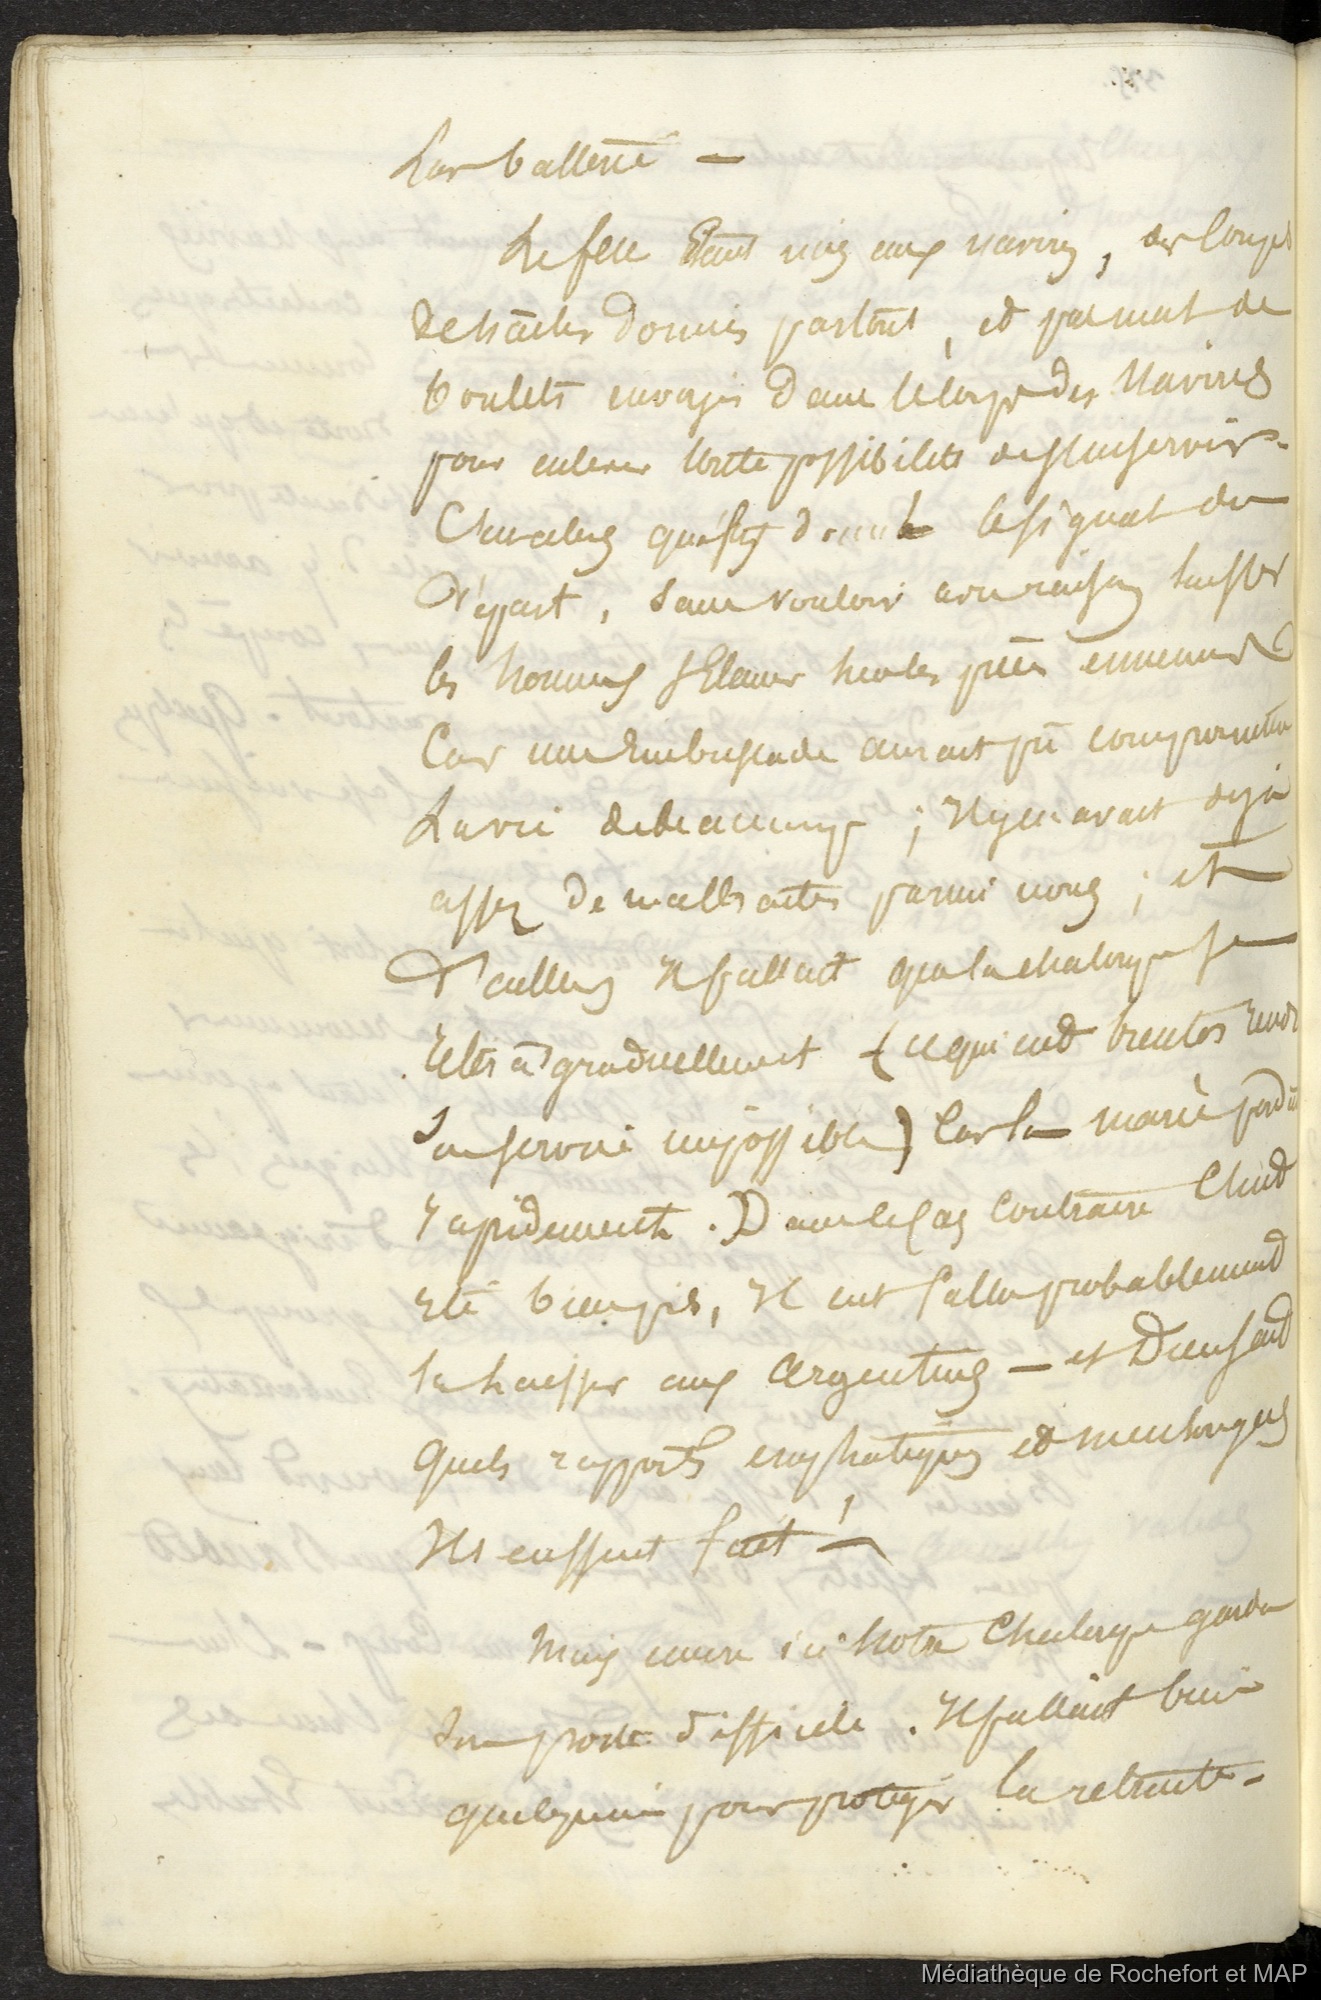 La batterie —
Le feu étant mis aux navires, des coups
de haches donnés partout, et pas mal de
boulets envoyés dans le corps des Navires
pour enlever toute possibilité de s'en servir.
qu'est donné le signal du
Départ, sans vouloir avec raison laisser
les hommes s'élancer hors les ennemis
Car une embuscade aurait pû compromettre
La vie de beaucoup ; Il y en avait dejà
assez de maltraités parmi nous ; et
D'ailleurs Il fallait que la chaloupe se
retirâ graduellement (ce qui eut bientôt rendu
Son service impossible) Car la marée perdit
rapidement. Dans le cas contraire C'eut
été bien pis, Il eut fallu probablement
la laisser aux Argentins — et Dieu sait
quels rapports emphatiques et mensongers
Ils eussent fait !
Mais encore ici Notre Chaloupe garda
Son poste difficile. Il fallait bien
quelqu'un pour protéger la retraite -
Médiathèque de Rochefort et MAP